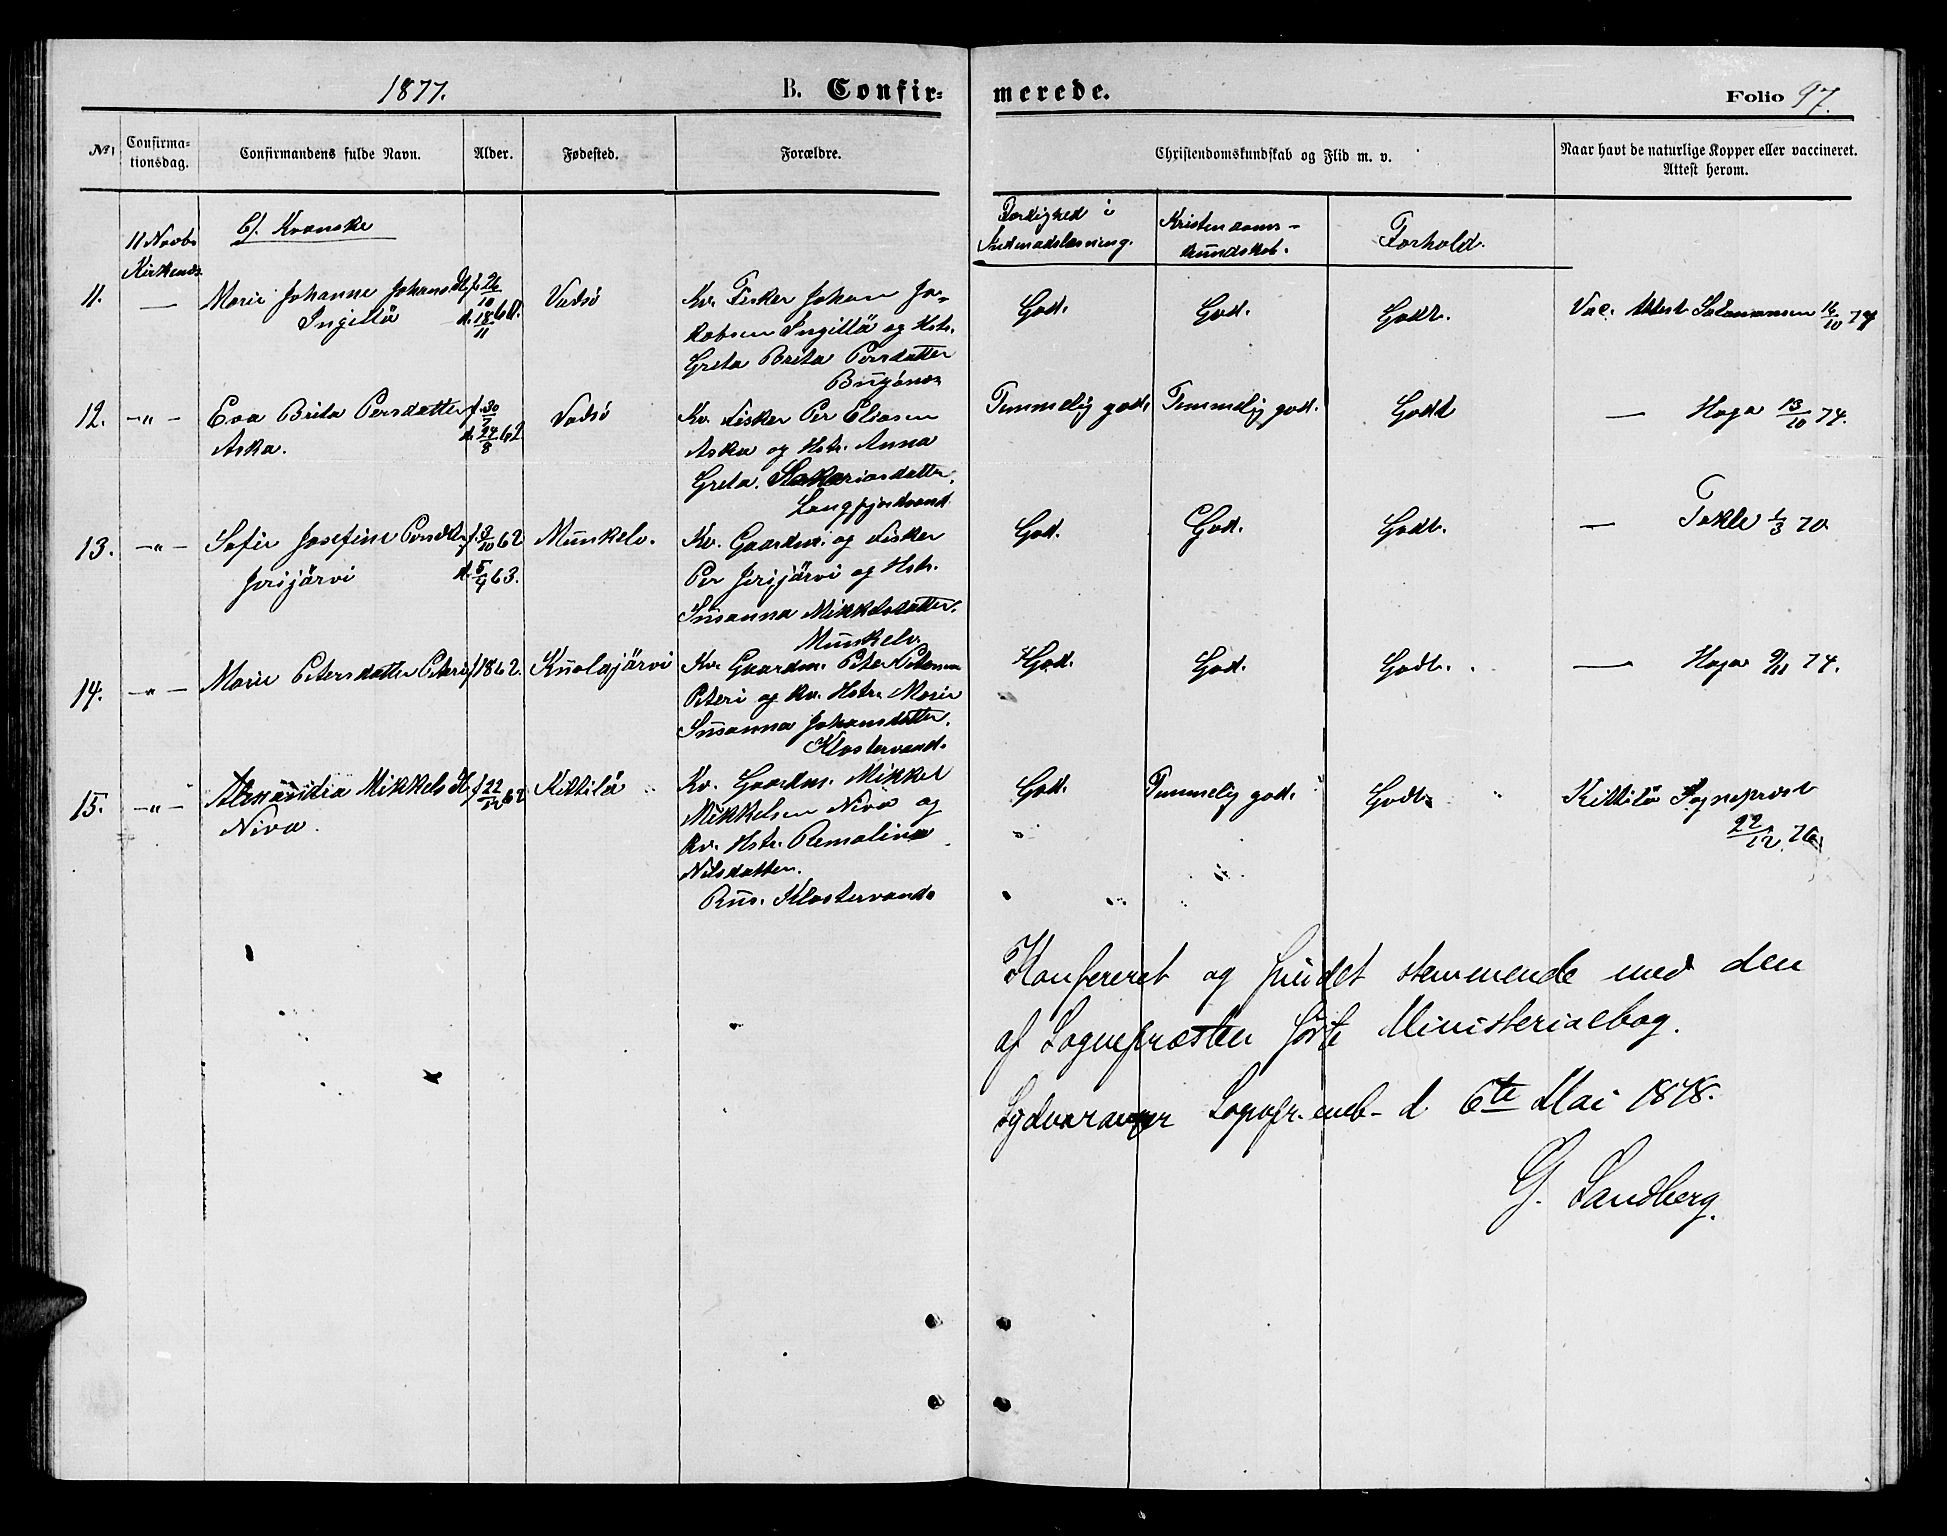 1877.
B. Confir-
merede.
Folio 97.
No.
Confirma-
tionsdag.
Confirmandens fulde Navn.
Alder.
Fødested.
Forældre.
Christendomskundskab og Flid m. v.
Naar havt de naturlige Kopper eller vaccineret.
Attest herom.
11 Novbr
Kirkenæs
b/. Kvænske
Færdighed i
Indenadslæsning.
Kristendoms-
kundskab.
Forhold.
11.
—
Marie Johanne Johansdtr
Ingillä
f. 26/10
d. 18/11 60.
Vadsø
Kv. Fisker Johan Ja-
kobsen Ingillä og Hstr.
Greta Brita Persdatter
Bugønæs
God.
God.
Godt.
Vac. Attest Salamonsen 14/10 74
12.
-"-
Eva Brita Persdatter
Aska.
f. 30/7
d. 24/8 62
Vadsø
Kv. Fisker Per Eliasen
Aska og Hstr. Anna
Greta Sakariasdatter,
Langfjordvand
Temmelig god.
Temmelig god.
Godt
— Haga 13/10 74.
13.
-"-
Sofie Josefine Persdtr
Jerijärvi
f. 3/10 62
d. 5/9 63.
Munkelv.
Kv. Gaardm. og Fisker
Per Jerijärvi og Hstr.
Susanna Mikkelsdatter.
Munkelv.
God.
God.
Godt.
— Tokle 1/3 70.
14.
-"-
Marie Petersdatter Peteri
f 1862.
Kuolajärvi
Kv. Gaardm. Peter Petersen
Peteri og kv. Hstr. Marie
Susanna Johansdatter.
Klostervand.
God.
God.
Godt.
— Haga 9/11 74.
15.
-"-
Alexandra Mikkelsdtr
Niva.
f 22/12 62
Kittilä
Kv. Gaardm. Mikkel
Mikkelsen Niva og
kv. Hstr. Remalina
Nilsdatter.
Rus. Klostervand
God.
Temmelig god.
Godt.
Kittilä Sogneprest
22/12 76
Konfereret og fundet stemmende med den
af Sognepræsten førte Ministerialbog.
Sydvaranger Sognepr.emb- d 6te Mai 1878.
G. Sandberg.